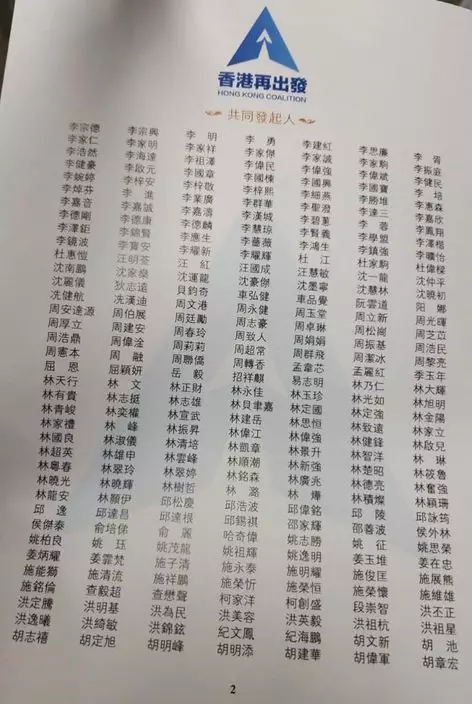 香港再出發
HONG KONG COALITION
共同發起人
李宗德 李宗興 李明 李勇 李建紅 李思廉 李胥
李家仁 李家明 李家祥 李家傑 李家誠 李家駒 李振庭
李浩然 李海達 李祖澤 李偉民 李偉強 李偉斌 李健民
李健豪 李啟元 李國章 李國棟 李國興 李國寶 李培
李婉婷 李梓安 李梓敬 李梓熙 李細燕 李勝堆 李惠森
李焯芬 李進 李業廣 李群華 李聖潑 李達三 李嘉欣
李嘉音 李嘉誠 李嘉濤 李漢城 李碧蔥 李蓉 李鳳翔
李德剛 李德康 李德麟 李慧琼 李賢義 李學盟 李澤楷
李澤鉅 李錦賢 李應生 李薔薇 李鴻生 李鎮強 李曠怡
李鏡波 李寶安 李耀新 李耀輝 杜江 杜家駒 杜偉樑
杜惠愷 汪明荃 汪紅 汪國成 汪慧敏 沈一龍 沈仲平
沈南鵬 沈家燊 沈運龍 沈豪傑 沈墨寧 沈慧林 沈曉初
沈麗儀 狄志遠 貝鈞奇 車弘健 車品覺 阮雲道 阳娜
冼健航 冼漢迪 周文港 周永健 周玉堂 周立新 周光暉
周安達源 周伯展 周廷勵 周志豪 周卓琳 周松崗 周芝苡
周厚立 周建安 周春玲 周致人 周娟娟 周振基 周浩民
周浩鼎 周偉淦 周莉莉 周超常 周群飛 周潔冰 周黎亮
周憲本 周融 周聯僑 周轉香 孟韋芯 孟麗紅 季玉年
屈恩 屈穎妍 岳毅 招祥麒 易志明 林乃仁 林大輝
林天行 林文 林正財 林永佳 林玉珍 林光如 林旭明
林有貴 林志挺 林志雄 林貝聿嘉 林定國 林定強 林金陽
林青峻 林奕權 林宣武 林建岳 林思恒 林致遠 林家立
林家禮 林峰 林振昇 林偉江 林偉強 林健鋒 林啟兒
林國良 林淑儀 林清培 林凱章 林景升 林智洋 林琳
林超英 林雄申 林雲峰 林順潮 林新強 林楚昭 林筱魯
林粵春 林翠玲 林翠婷 林銘森 林廣兆 林德亮 林奮強
林曉光 林曉輝 林樹哲 林潞 林燁 林積燦 林穎珊
林龍安 林願伊 邱松慶 邱浩波 邱偉銘 邱陵 邱詠筠
邱逸 邱達昌 邱達根 邱錫祺 邵家輝 邵善波 侯外林
侯傑泰 俞培俤 俞麗 哈奇偉 姚志勝 姚征 姚思榮
姚柏良 姚珏 姚茂龍 姚祖輝 姚逸明 姜玉堆 姜在忠
姜炳耀 姜霏梵 施子清 施永泰 施明耀 施俊匡 施展熊
施能獅 施清流 施祥鵬 施榮忻 施榮恒 施榮懷 施維雄
施銘倫 查毅超 查懋聲 柯家洋 柯創盛 段崇智 洪丕正
洪定騰 洪明基 洪為民 洪美容 洪英毅 洪祖杭 洪祖星
洪逸曦 洪綺敏 洪錦鉉 紀文鳳 紀海鵬 胡文新 胡池
胡志禧 胡定旭 胡明峰 胡明添 胡建華 胡偉軍 胡章宏
2